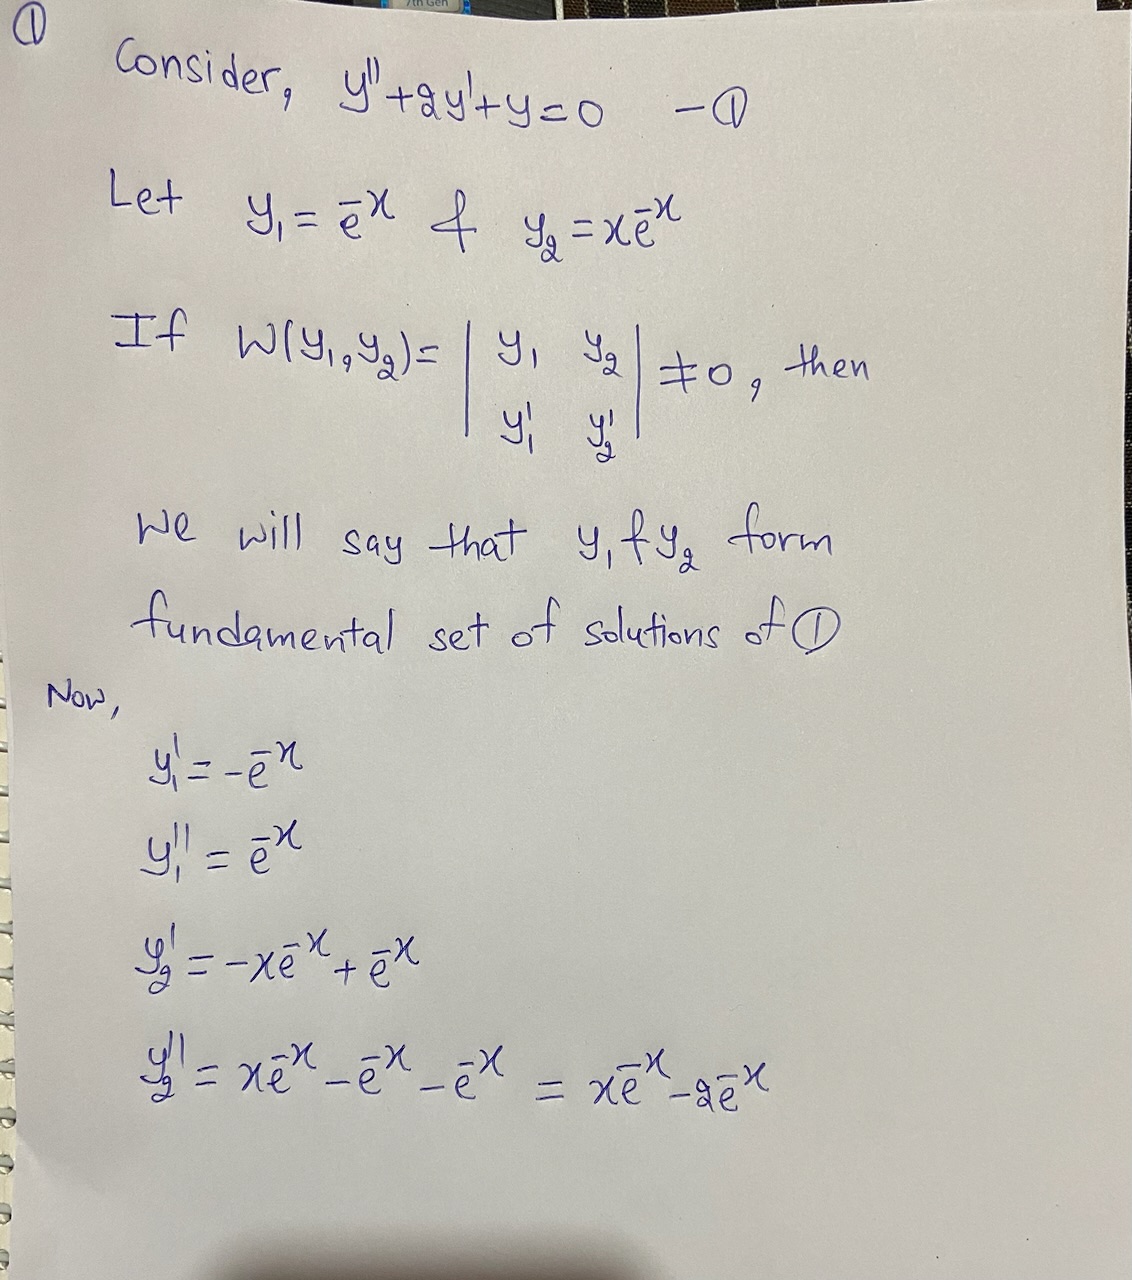 7th Gen
①
Consider, y''+2y'+y=0 -①
Let y₁= e⁻ˣ & y₂=xe⁻ˣ
If W(y₁,y₂)= | y₁ y₂ | ≠0, then
| y₁' y₂' |
we will say that y₁&y₂ form
fundamental set of solutions of ①
Now,
y₁'= -e⁻ˣ
y₁''= e⁻ˣ
y₂'= -xe⁻ˣ+e⁻ˣ
y₂''= xe⁻ˣ-e⁻ˣ-e⁻ˣ = xe⁻ˣ-2e⁻ˣ